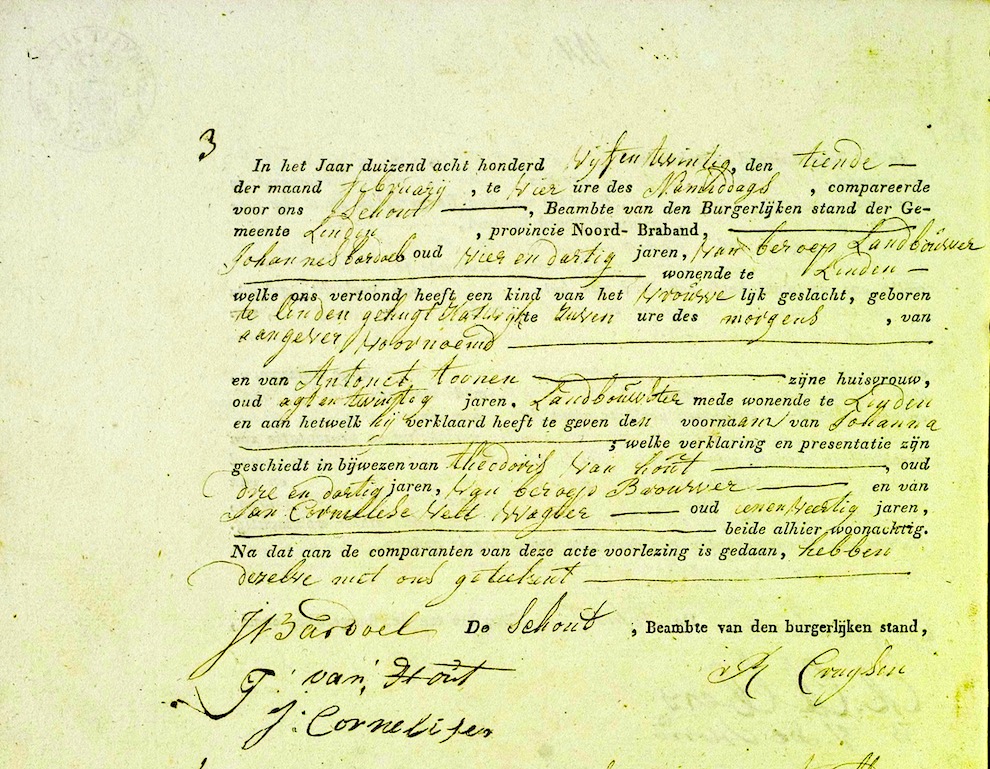 3
In het Jaar duizend acht honderd Vyf en twintig, den tiende
der maand february, te Vier ure des Namiddags, compareerde
voor ons Schout, Beambte van den Burgerlijken stand der Ge-
meente Linden, provincie Noord-Braband,
Johannes bardoel oud Vier en dartig jaren, Van beroep Landbouwer
wonende te Linden
welke ons vertoond heeft een kind van het Vrouwe lijk geslacht, geboren
te linden gehugt Katwijk te Seven ure des morgens, van
aangever Voornoemd
en van Antonet toonen zijne huisvrouw,
oud agt en twintig jaren. Landbouwster mede wonende te Linden
en aan hetwelk hij verklaard heeft te geven den voornaam van Johanna
; welke verklaring en presentatie zijn
geschiedt in bijwezen van theodoris Van hout, oud
drie en dartig jaren, Van beroep Brouwer en van
Jan Cornelese Velt Wagter oud eenen Veertig jaren,
beide alhier woonachtig.
Na dat aan de comparanten van deze acte voorlezing is gedaan, hebben
dezelve met ons geteekent
Bardoel De Schout, Beambte van den burgerlijken stand,
T. van Hout Cruysen
J: Cornelisen